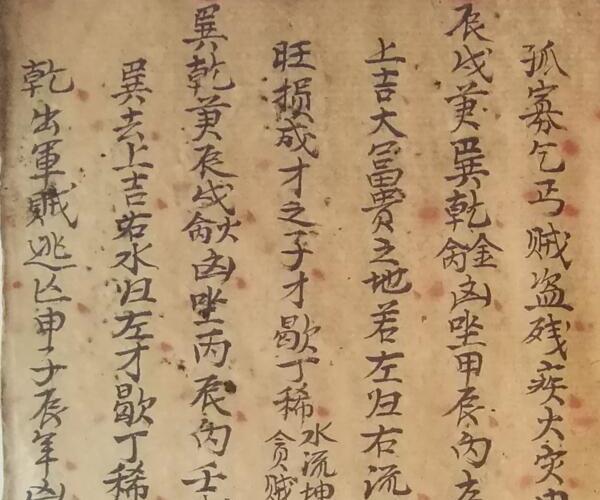 孤寡乞丐贼盗残疾火灾
辰戌黄巽乾龠金凶坐甲辰丙
上吉大富贵之地若左归右流
旺损成才之子才歇丁稀水流坤贪贼
巽乾黄辰戌龠火凶坐丙辰丙壬
巽去上吉若水归左才歇丁稀
乾出軍贼逃亡申子辰年凶